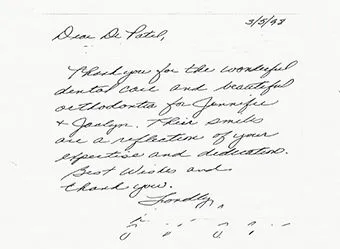 3/3/93
Dear Dr Patel,
Thank you for the wonderful
dental care and beautiful
orthodontia for Jennifer
& Jaclyn. Their smiles
are a reflection of your
expertise and dedication.
Best Wishes and
thank you.
Fondly,